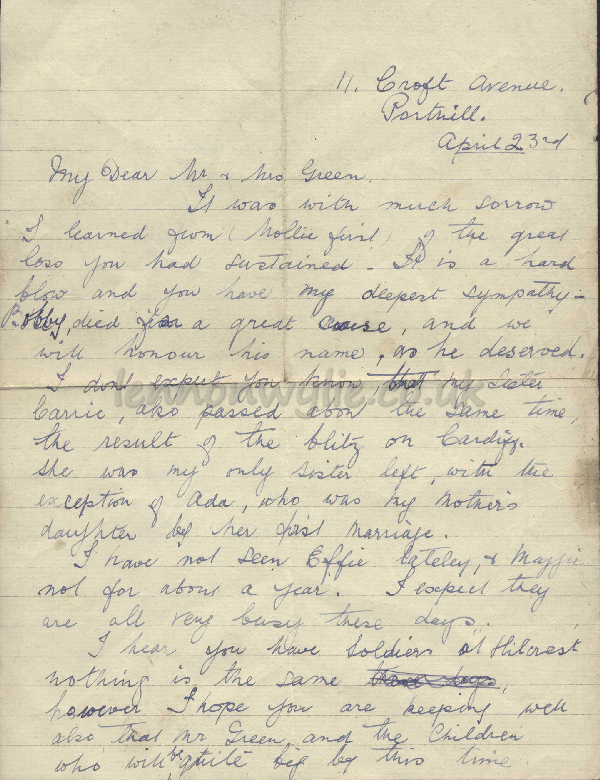 11. Croft Avenue.
Portrill.
April 23rd
My Dear Mr & Mrs Green,
It was with much sorrow
I learned from (Mollie first) of the great
loss you had sustained - It is a hard
blow and you have my deepest sympathy -
Bobby, died for a great cause, and we
will honour his name, as he deserved.
I dont expect you know that my Sister
Carrie, also passed abou the same time,
the result of the blitz on Cardiff.
She was my only sister left, with the
exception of Ada, who was my Mother's
daughter by her first marriage.
I have not seen Effie lateley, & Maggie
not for about a year. I expect they
are all very busy these days.
I hear you have Soldiers at Hilcrest
nothing is the same these days,
however I hope you are keeping well
also that Mr Green, and the Children
who will be quite big by this time
lennonwylie.co.uk